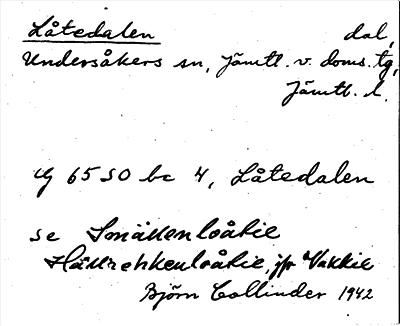 Låtedalen dal,
Undersåkers sn, Jämtl. v. doms. tg,
Jämtl. l.
65 SO bc 4, Låtedalen
se Smällenloåkie
jfr Vakkie
Björn Collinder 1942